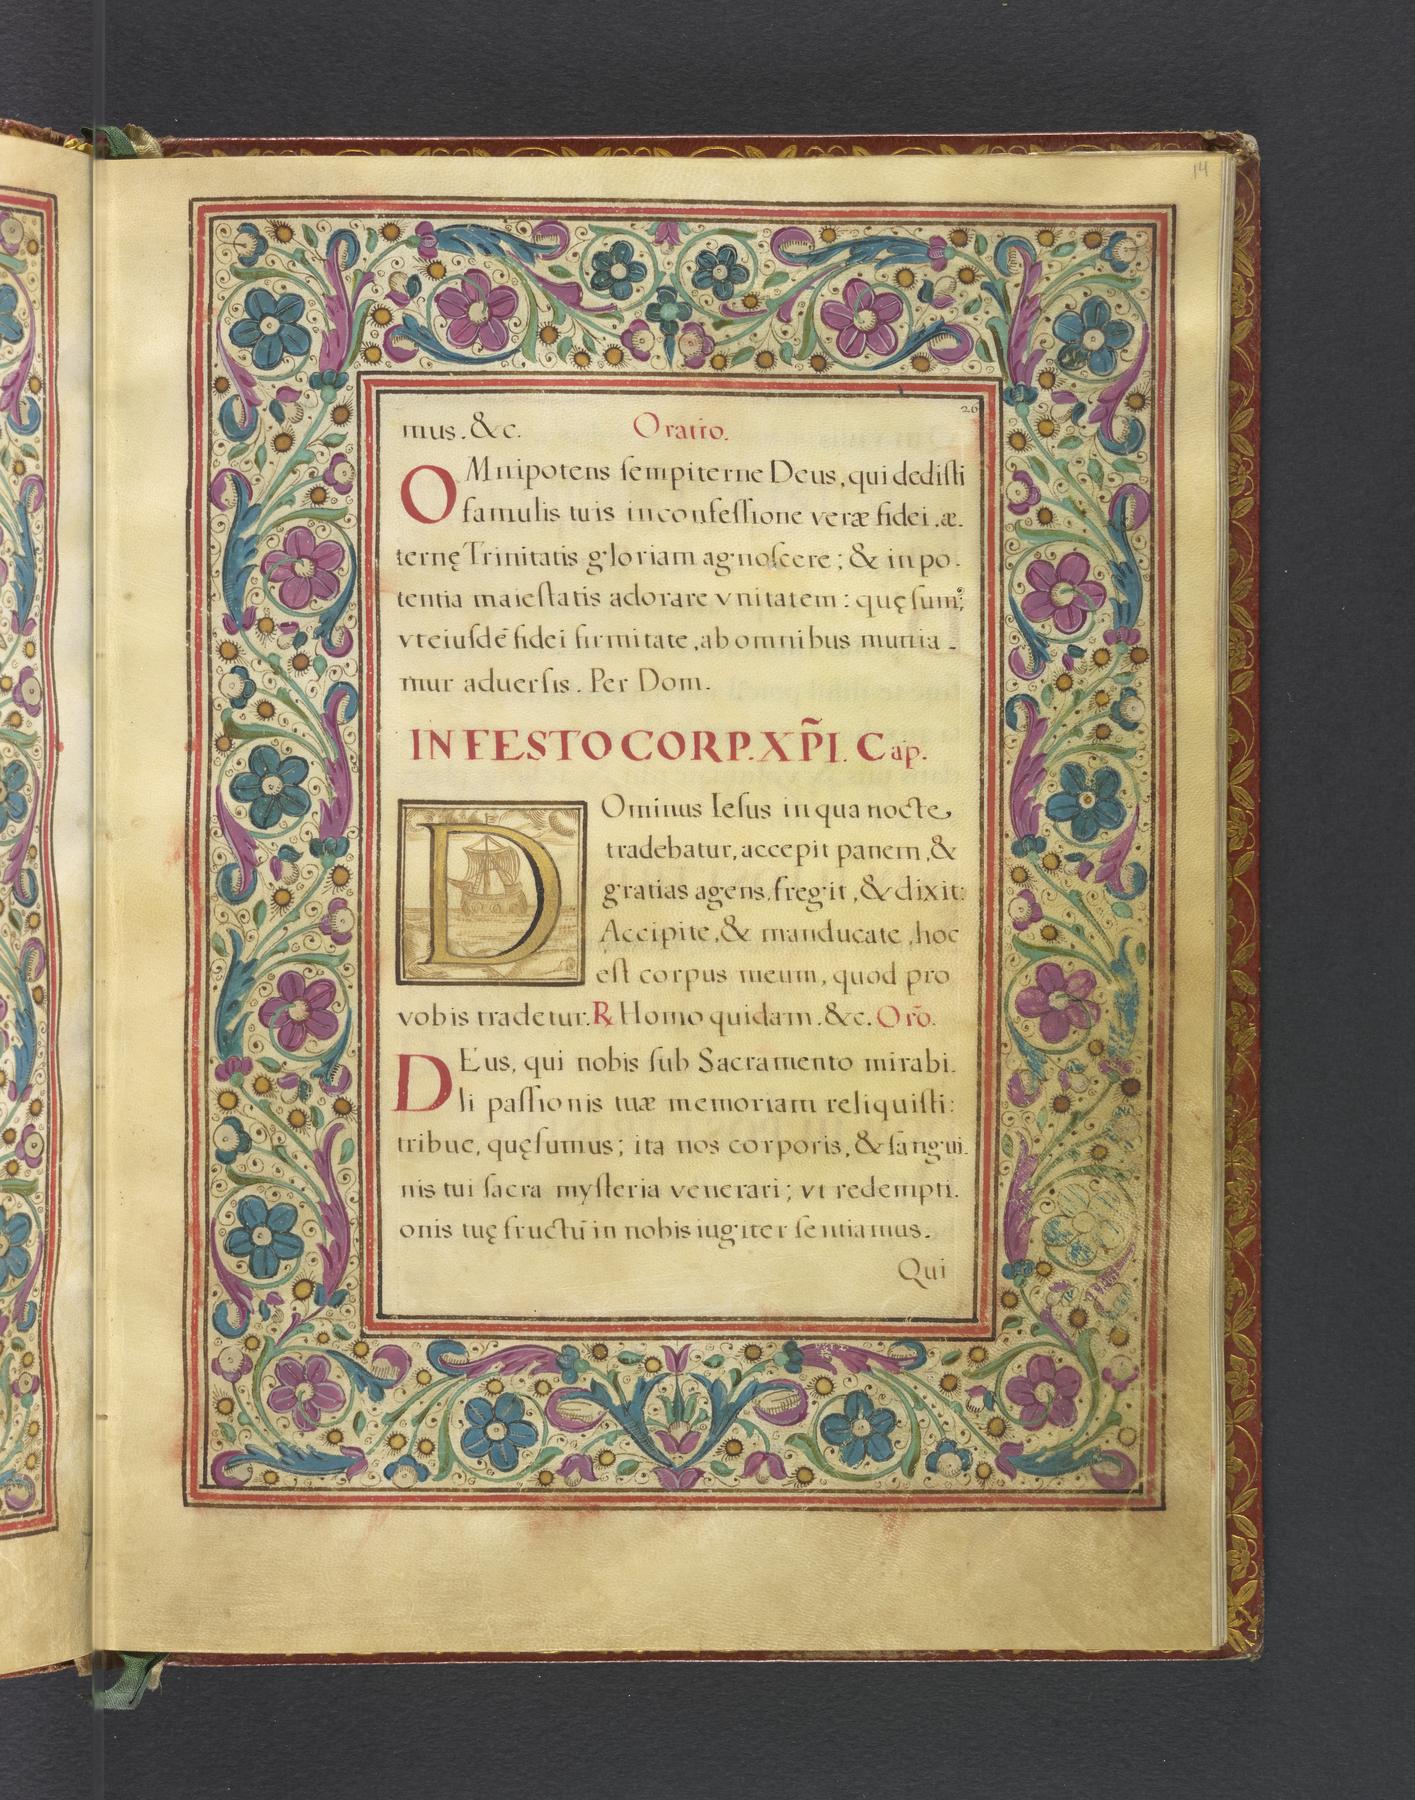 14
26
mus. &c. Oratio.
OMnipotens ſempiterne Deus, qui dediſti
famulis tuis in confeſſione veræ fidei, æ-
ternę Trinitatis gloriam agnoſcere; & in po-
tentia maieſtatis adorare vnitatem: quęſum⁹,
vt eiuſdē fidei firmitate, ab omnibus munia-
mur aduerſis. Per Dom.
IN FESTO CORP. XP̃I. Cap.
DOminus Ieſus in qua nocte
tradebatur, accepit panem, &
gratias agens, fregit, & dixit:
Accipite, & manducate, hoc
eſt corpus meum, quod pro
vobis tradetur. ℞ Homo quidam. &c. Orõ.
DEus, qui nobis ſub Sacramento mirabi-
li paſſionis tuæ memoriam reliquiſti:
tribue, quęſumus; ita nos corporis, & ſangui-
nis tui ſacra myſteria venerari; vt redempti-
onis tuę fructū in nobis iugiter ſentiamus.
Qui